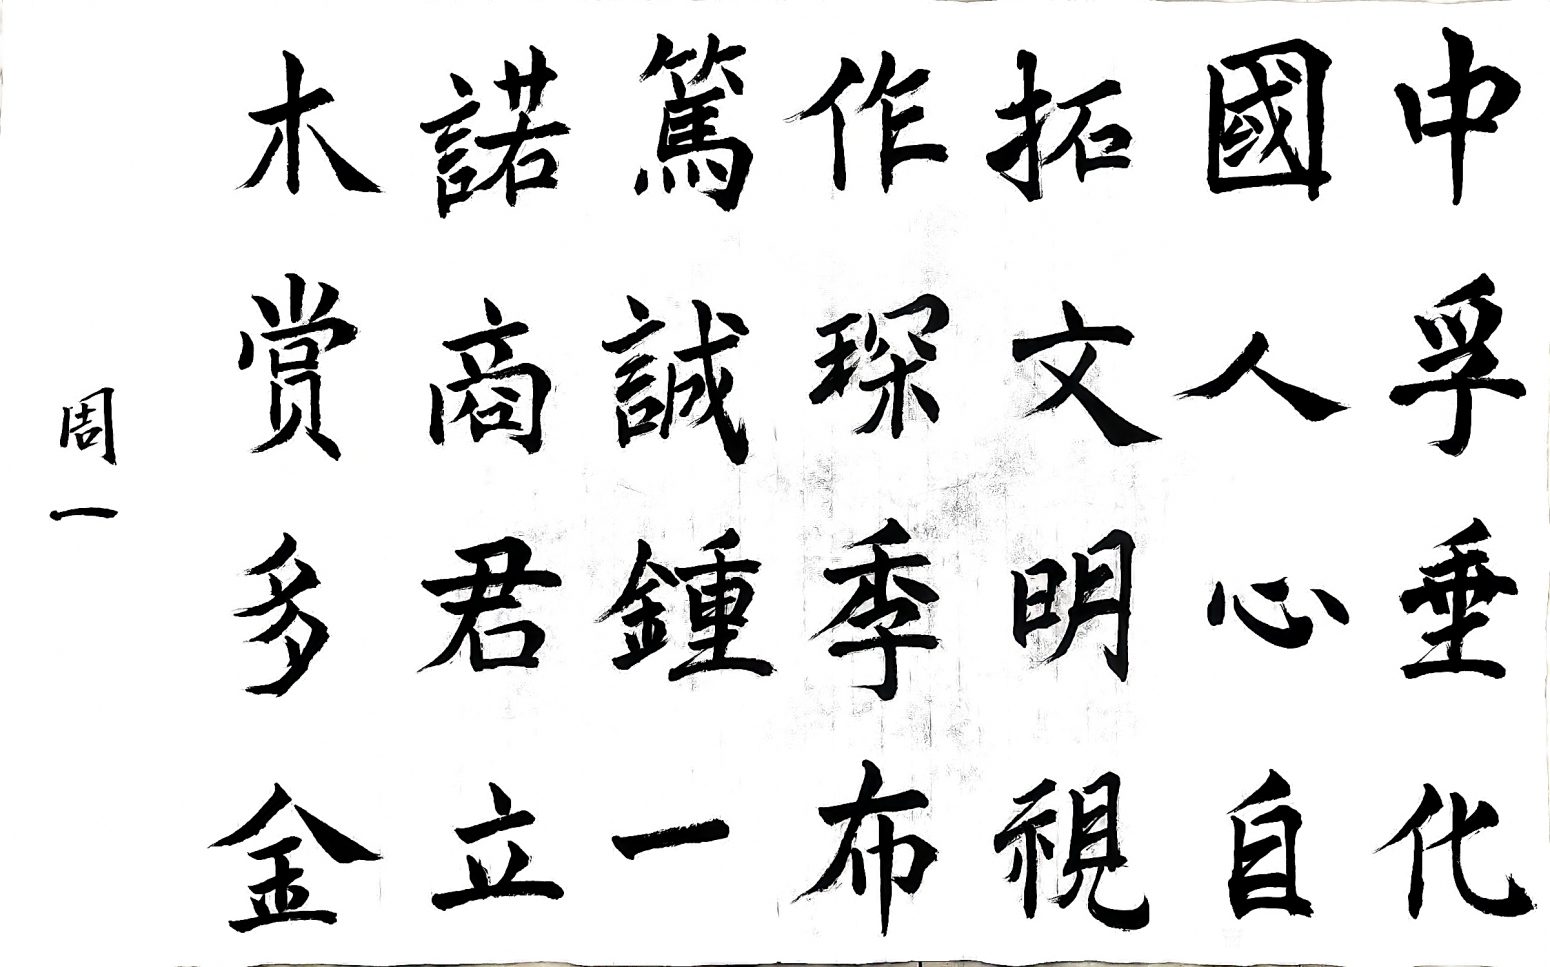 中孚垂化
國人心自
拓文明視
作琛季布
篤誠鍾一
諾商君立
木賞多金
周一